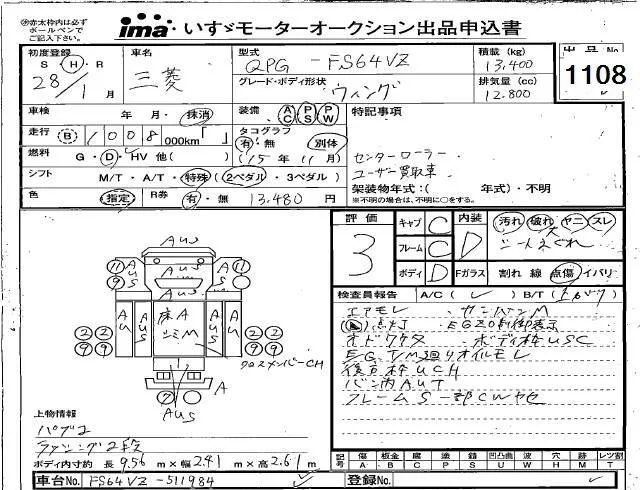 ※赤太枠内は必ず
ボールペンで
ご記入下さい。
ima いすゞモーターオークション出品申込書
初度登録 S・H・R 28/1 月
車名 三菱
型式 QPG-FS64VZ
グレード・ボディ形状 ウィング
積載(kg) 13,400
排気量(cc) 12.800
出品No
1108
車検 年・月・抹消
装備 AC PS PW
特記事項
走行 B 1008 000km「 」
タコグラフ 有・無 別体
燃料 G・D・HV 他( )
(15年 11月)
センターローラー
ユーザー買取車
シフト M/T・A/T・特殊(2ペダル・3ペダル)
架装物年式:( 年式)・不明
※不明の場合は、不明に○をする。
色 指定 R券 有・無 13.480 円
評価 3
キャブ C
フレーム C
ボディ D
内装 D
汚れ 破れ ヤニ スレ
Fガラス 割れ 線 点傷 イバリ
検査員報告 A/C( ✓ ) B/T( )
エアモレ
オドワケタ ボディ枠USC
E/G,T/M廻りオイルモレ
後戸枠UCH
バン内AUT
フレームS一部CWヤセ
AUS
11 9 AUS AUS 11
AU AUS 床A AUS AU
2 2 9 9 2 2 9 9
クロスメンバーCH
7 A
AUS
上物情報
パブコ
ラッシング2段
ボディ内寸約 長9.56 m×幅2.41 m×高2.61 m
記号 傷A 板金B 腐C 塗P 錆S 凹凸曲U 波W 穴H 跡M レツ割T
車台No. FS64VZ-511984
登録No.